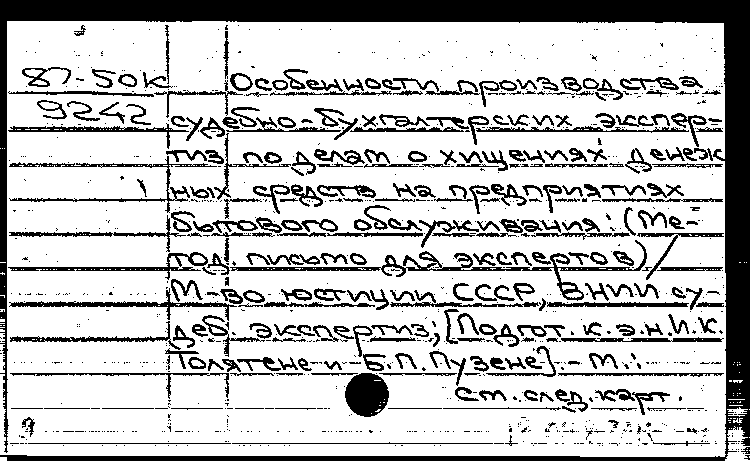 87-50к Особенности производства
9242 судебно-бухгалтерских экспер-
тиз по делам о хищениях денеж
ных средств на предприятиях
бытового обслуживания: (Ме-
тод. письмо для экспертов) /
М-во юстиции СССР, ВНИИ су-
деб. экспертиз; [Подгот. к.э.н. И.К.
и Б.П. Пузене]. - М.:
См. след. карт.
9